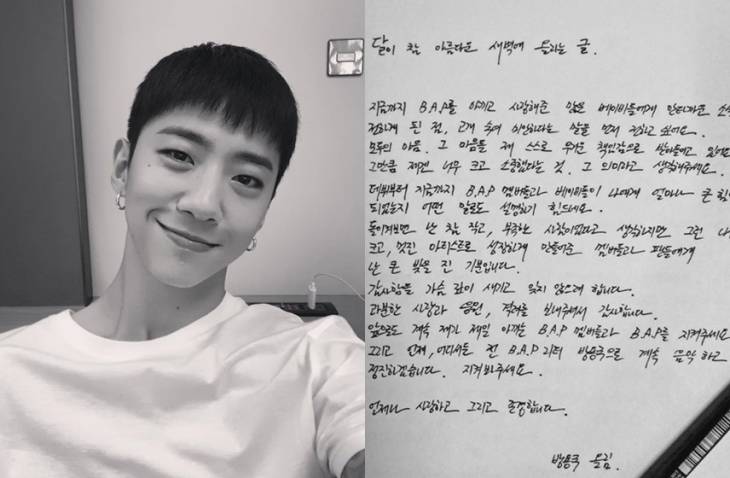 달이 참 아름다운 새벽에 올리는 글.
지금까지 B.A.P를 아끼고 사랑해준 많은 베이비들에게 안타까운 소식
전하게 된 점, 고개 숙여 미안하다는 말을 먼저 전하고 싶어요.
모두의 아픔. 그 마음들 제 스스로 무거운 책임감으로
그만큼 제겐 너무 크고 소중했다는 것. 그 의미라고 생각해주세요.
데뷔부터 지금까지 B.A.P 멤버들과 베이비들이 나에게 얼마나 큰 힘이
되었는지 어떤 말로도 설명하기 힘드네요.
돌이켜보면 난 참 작고, 부족한 사람이었다고 생각하지만 그런 나를
크고, 멋진 아티스트로 성장하게 만들어준 멤버들과 팬들에게
난 큰 빚을 진 기분입니다.
감사함을 가슴 깊이 새기고 잊지 않으려 합니다.
과분한 사랑과 응원, 격려를 보내주셔서 감사합니다.
앞으로도 계속 제가 제일 아끼는 B.A.P 멤버들과 B.A.P를 지켜주세요
그리고 언제, 어디서든 전 B.A.P 리더 방용국으로 계속 음악 하고
정진하겠습니다. 지켜봐주세요.
언제나 사랑하고 그리고 존경합니다.
방용국 올림.